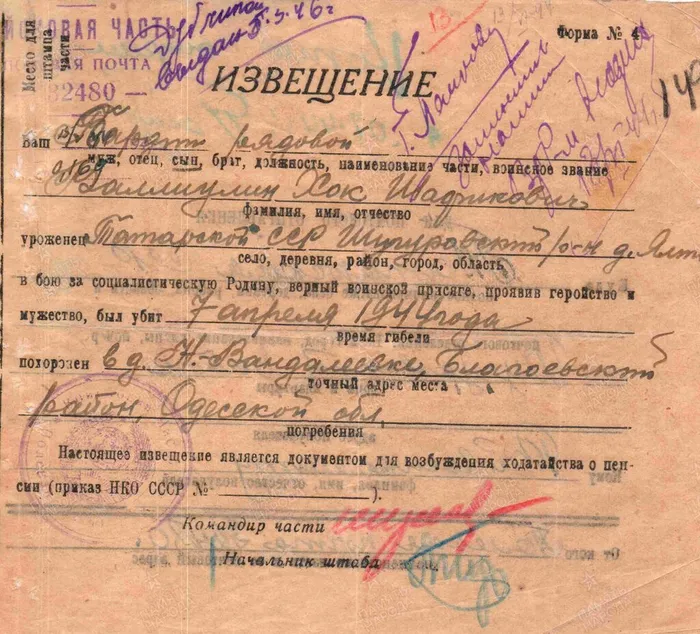 ПОЛЕВАЯ ПОЧТА
— 32480 —
Место для штампа части
Дубликат
выдан 5.3.46 г
13
Форма № 4
ИЗВЕЩЕНИЕ
Ваш рядовой
муж, отец, сын, брат, должность, наименование части, воинское звание
Валлиулин Хок Шафикович
фамилия, имя, отчество
уроженец Татарской ССР Шугуровский р-н д. Ялт
село, деревня, район, город, область
в бою за социалистическую Родину, верный воинской присяге, проявив геройство и
мужество, был убит 7 апреля 1944 года
время гибели
похоронен в д. Н.-Вандалеевке, Благоевский
точный адрес места
район, Одесской обл.
погребения
Настоящее извещение является документом для возбуждения ходатайства о пен-
сии (приказ НКО СССР № ).
Командир части
Начальник штаба